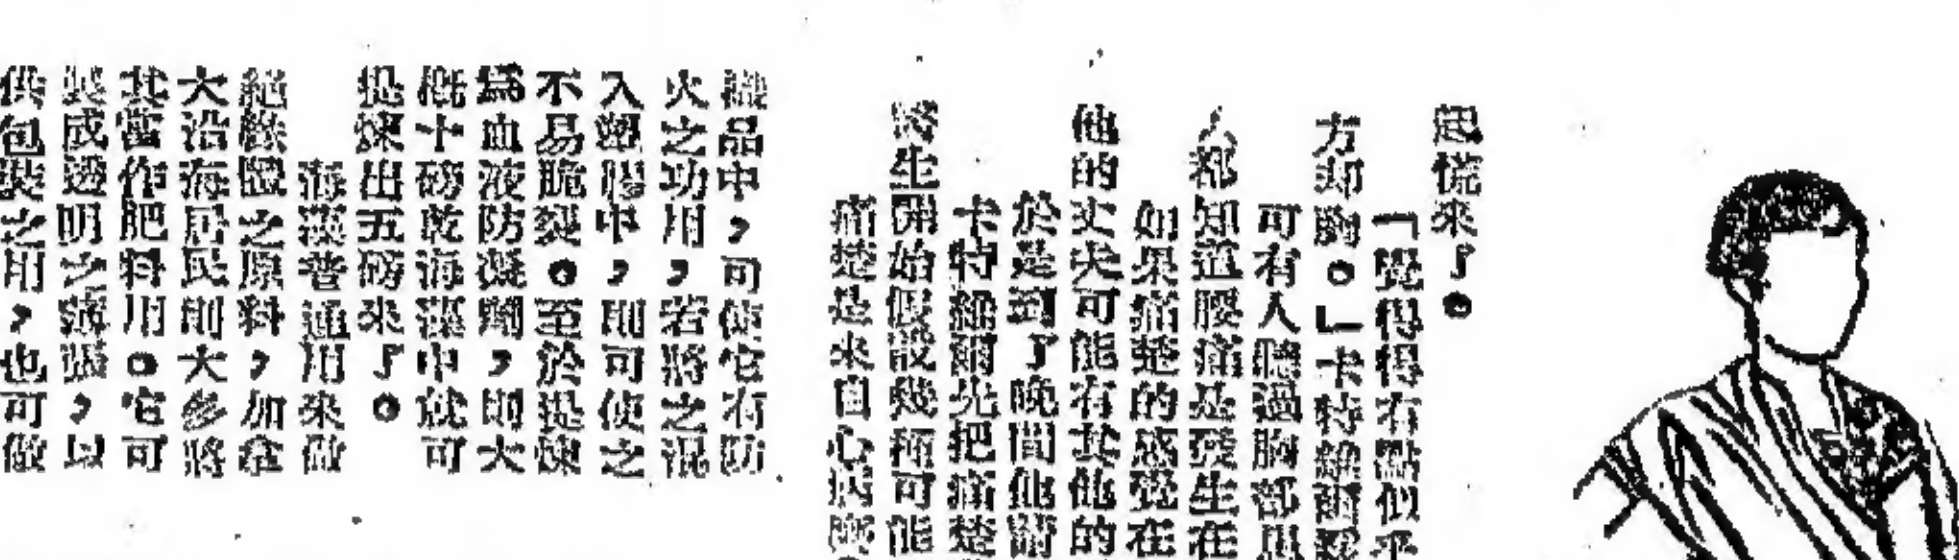 起慌來了。
「覺得得有點似乎
方却胸。」卡特繪爾醫
可有人聽過胸部思
人都知道腰痛是發生在
如果痛楚的感覺在
他的丈夫可能有其他的
於是到了晚間他請
卡特繪爾先把痛楚
醫生開始假設幾種可能
痛楚是來自心病
織品中,可使它有防
火之功用,若將之混
入塑膠中,則可使之
不易脆裂。至於提煉
爲血液防凝劑,則大
概十磅乾海藻中就可
提煉出五磅來了。
海藻普通用來做
絕緣體之原料,加拿
大沿海居民則大多將
其當作肥料用。它可
製成透明之薄張,以
供包裝之用,也可做